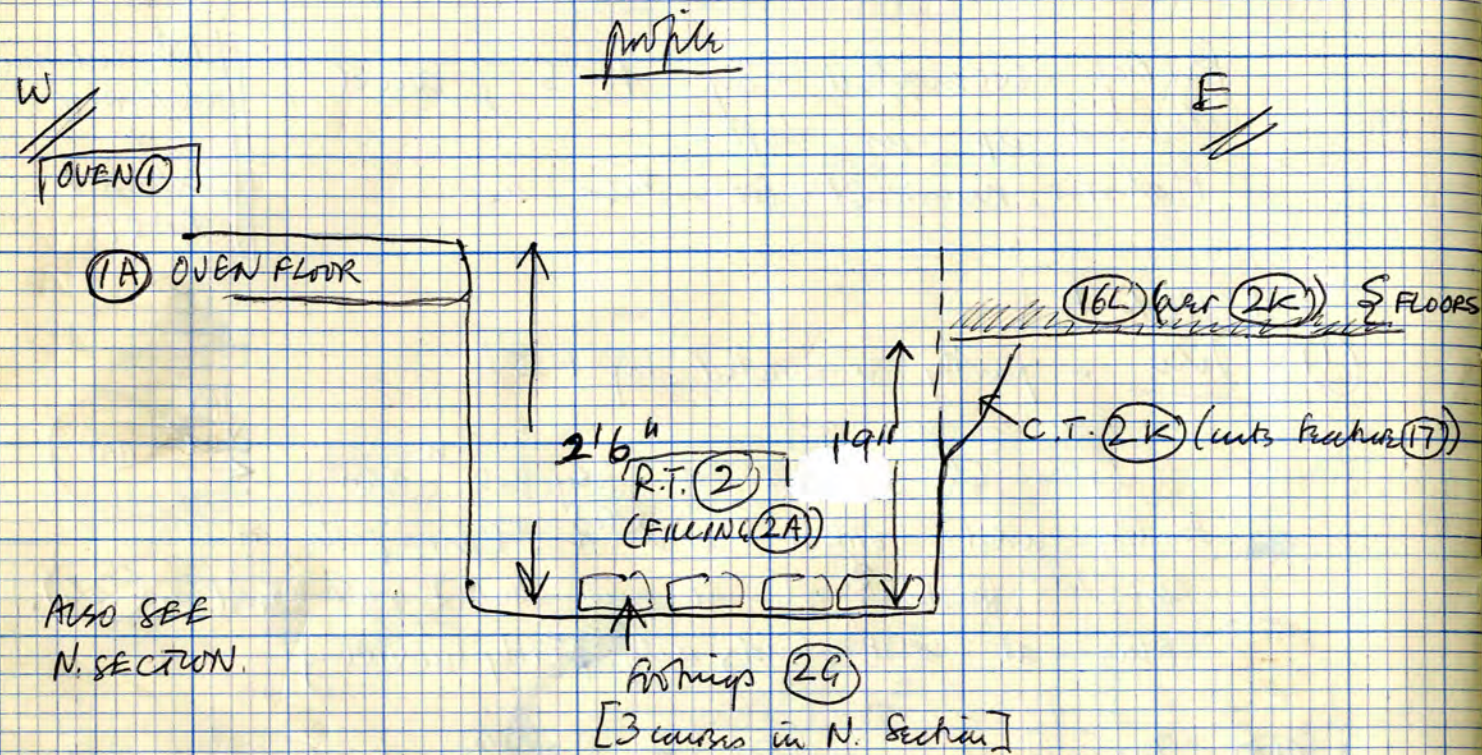 profile
W
E
OVEN 1
1A OVEN FLOOR
16L (over 2K) } FLOORS
C.T. 2K (cuts feature 17)
2'6"
1'9"
R.T. 2
(FILLING 2A)
ALSO SEE
N. SECTION.
footings 2G
[3 courses in N. Section]